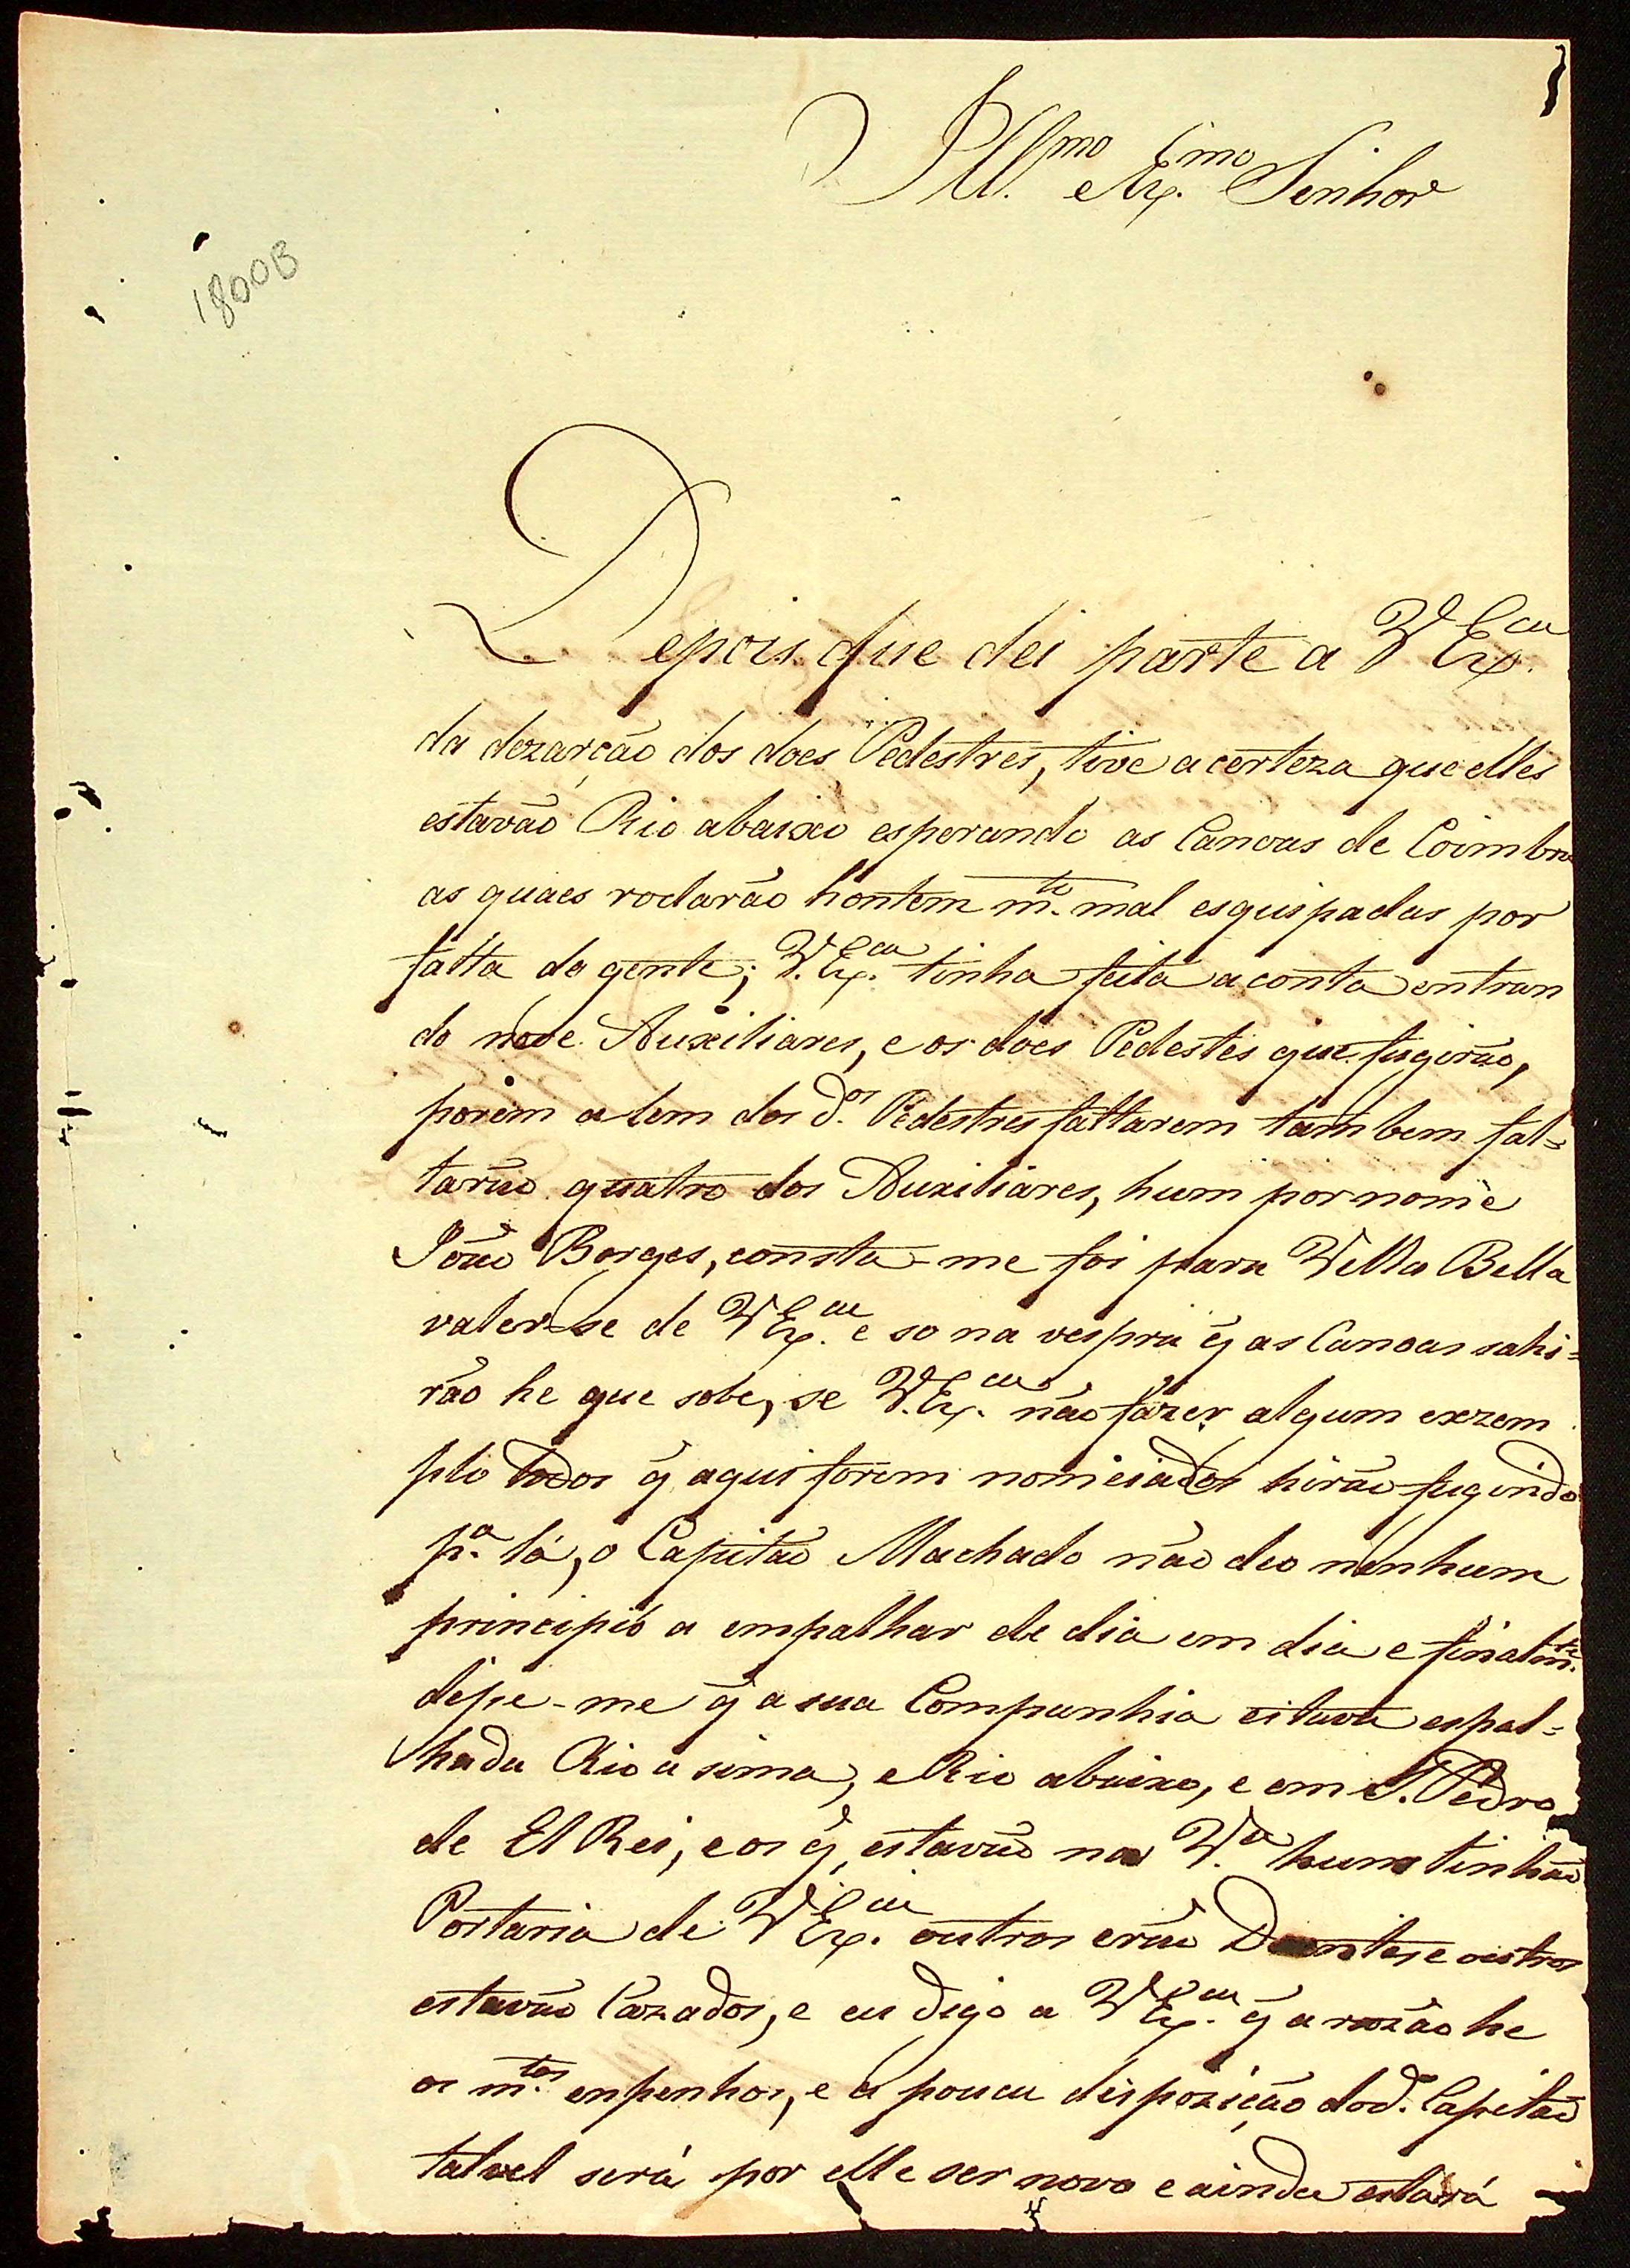 Ill.mo e Ex.mo Senhor
1800B
Depois que dei parte a V Ex.ca
da dezarção dos does Pedestres, tive a certeza que elles
estavão Rio abaixo esperando as Canoas de Coimbra
as quaes rodarão hontem m.to mal esquipadas por
falta da gente; V. Ex.ca tinha feita a conta entran
do nove Auxiliares, e os does Pedestes que fugirão,
porem alem dos d.os Pedestres faltarem tambem fal=
tarão quatro dos Auxiliares, hum por nome
João Borges, consta-me foi para Villa Bella
valer-se de V Ex.ca e so na vespra q̃ as Canoas sahi=
rão he que sobe, se V. Ex.ca não fazer algum exzem
plo todos q̃ aqui forem nomeiados hirão fugindo
p.a lá, o Capitão Machado não deo nenhum
principio a empalhar de dia em dia e finalm.te
diçe-me q̃ a sua Companhia estava espal=
hada Rio a sima, e Rio abaixo, e em S. Pedro
de El Rei, e os q̃ estavão na V.a huns tinhão
Portaria de V Ex.ca outros erão Doentes e outros
estavão Cazados, e eu digo a V Ex.ca q̃ a razão he
os m.tos enpenhos, e a pouca dispozição do d.o Capitão
talvel será por elle ser novo e ainda estará